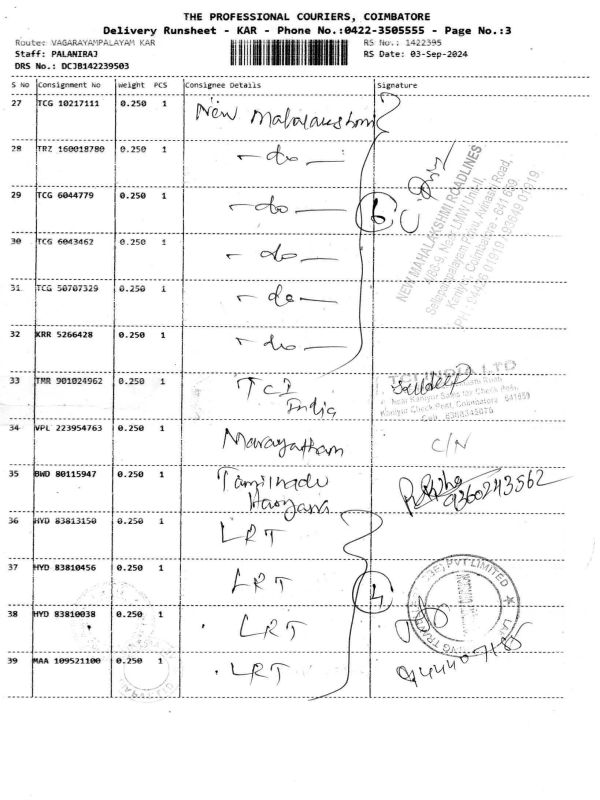 THE PROFESSIONAL COURIERS, COIMBATORE
Delivery Runsheet - KAR - Phone No.:0422-3505555 - Page No.:3
Route: VAGARAYAMPALAYAM KAR RS No.: 1422395
Staff: PALANIRAJ RS Date: 03-Sep-2024
DRS No.: DCJB142239503
S No Consignment No Weight PCS Consignee Details Signature
27 TCG 10217111 0.250 1 New Mahalakshmi
28 TRZ 160018780 0.250 1 - do -
29 TCG 6044779 0.250 1 - do - 6
30 TCG 6043462 0.250 1 - do -
31 TCG 50707329 0.250 1 - do -
32 KRR 5266428 0.250 1 - do -
NEW MAHALAKSHMI ROADLINES
33 TMR 901024962 0.250 1 TCI India
34 VPL 223954763 0.250 1 C/N
35 BWD 80115947 0.250 1 Tamilnadu Haryana 9360243562
36 HYD 83813150 0.250 1 LRT
37 HYD 83810456 0.250 1 LRT 4
PVT LIMITED
38 HYD 83810038 0.250 1 LRT
39 MAA 109521100 0.250 1 LRT